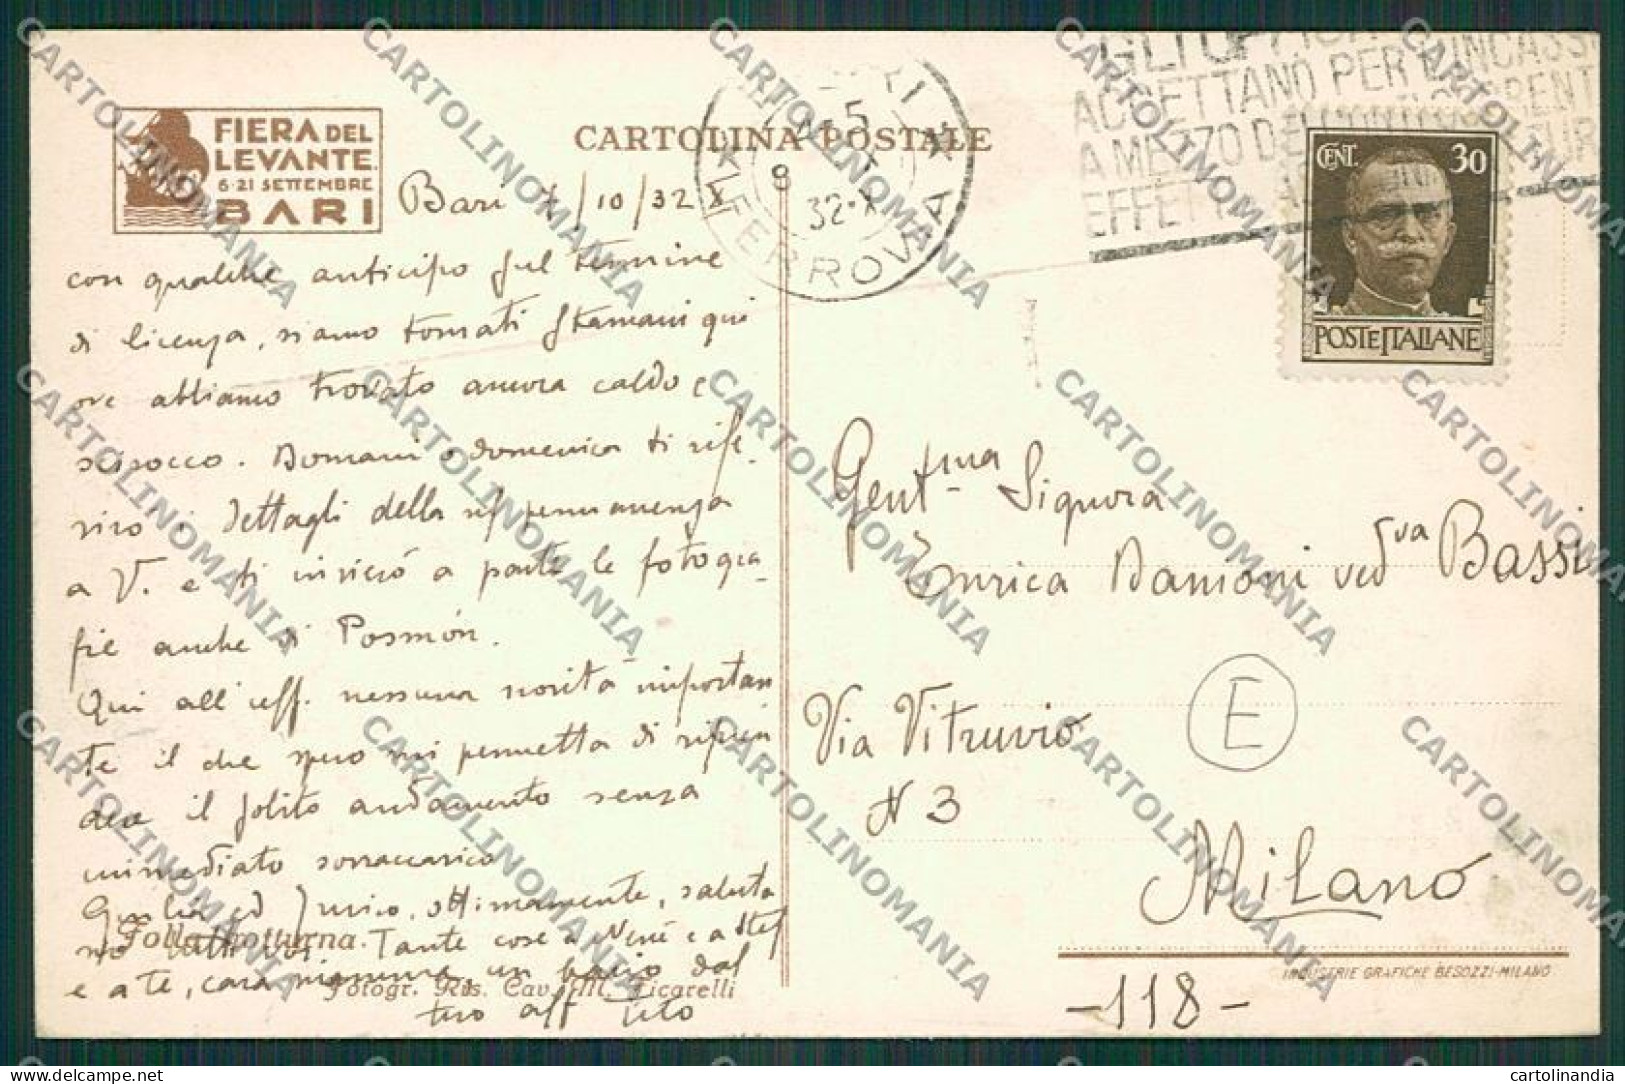 FIERA DEL
LEVANTE
6-21 SETTEMBRE
BARI
CARTOLINA POSTALE
Bari /10/32 X
con qualche anticipo sul termine
di licenza, siamo tornati stamani qui
ove abbiamo trovato ancora caldo e
scirocco. Domani o domenica ti rife-
rirò i dettagli della permanenza
a V. e ti invierò a parte le fotogra-
fie anche di
Qui all'uff. nessuna novità importan
te il che spero mi permetta di ripren
dere il solito andamento senza
immediato sovraccarico
Giulia ed ottimamente, saluta
no tutti voi. Tante cose a Nené e a
e a te, cara un bacio dal
tuo aff Tito
Folla notturna.
Fotogr. Ris. Cav. M. Ficarelli
BARI
FERROVIA
8
32·X
GLI UFFICI
ACCETTANO PER L'INCASSO
A MEZZO DEI CONTI CORRENTI
EFFETTI
CENT. 30
POSTE ITALIANE
Gent.ma Signora
Enrica Damioni ved.va Bassi
Via Vitruvio
N 3
E
Milano
INDUSTRIE GRAFICHE BESOZZI-MILANO
-118-
CARTOLINOMANIA
delcampe.net
cartolinandia